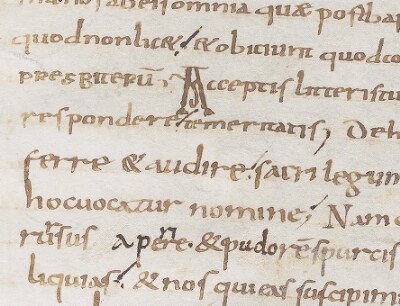 omnia quae post hap
quod non lice, & obiciunt quod co
presbiterū, Acceptis litteris tu
respondere temeritatis, Deh
ferre & audire. sacrilegum
hoc uocatur nomine; Nam
rūsus aperire. & pudore spurcis
liquias, & nos qui eas suscipim